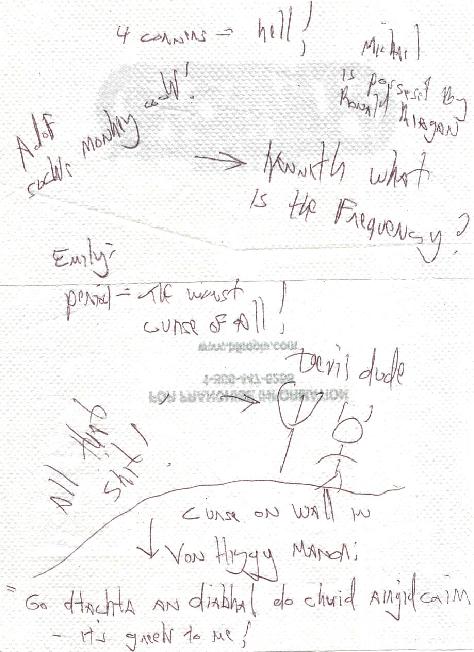 4 corners = hell!
Michael
is possesed By
Ronald Reagan
Adolf
sucks monkey
→ Kenneth what
is the Frequency?
Emily:
period = The worst
curse of All!
www.pitapia.com
1-866-447-8258
FOR FRANCHISE INFORMATION
Devil's dude
All that
shit!
curse on wall in
Von Higgy Manor:
"Go dtachta an diabhal do chuid airgid caim
- it's greek to me!